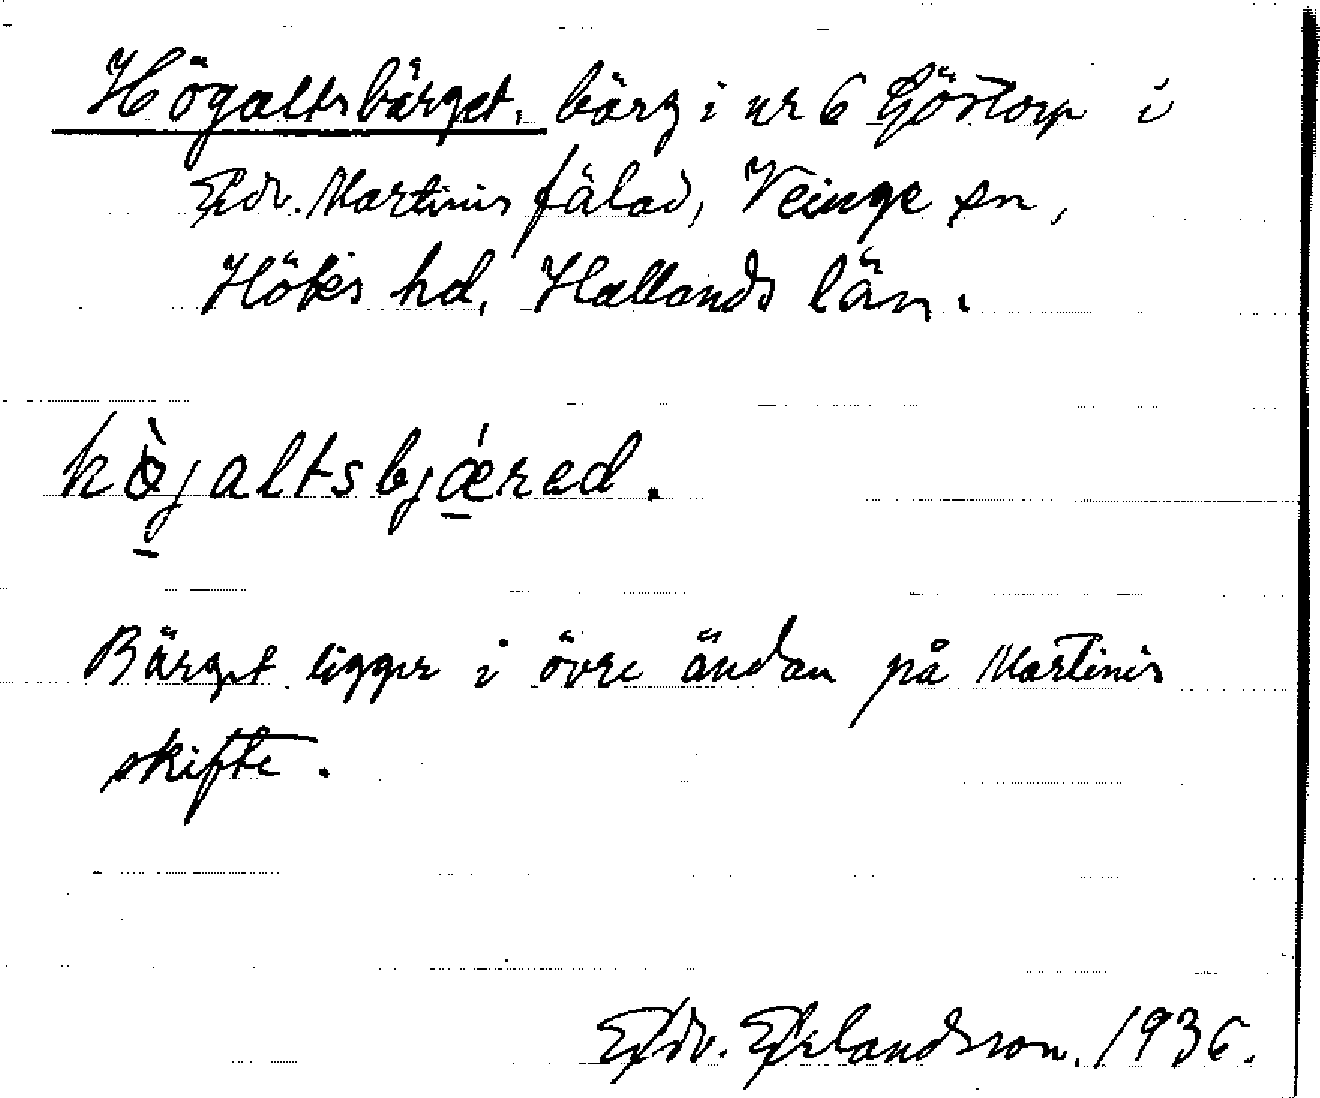 Högaltsbärget, bärg i nr 6 Göstorp i
Edv. Martinis fälad, Veinge sn,
Höks hd, Hallands län.
hö̀jaltsbjǽrəd.
Bärget ligger i övre ändan på Martinis
skifte.
Edv. Erlandsson. 1936.